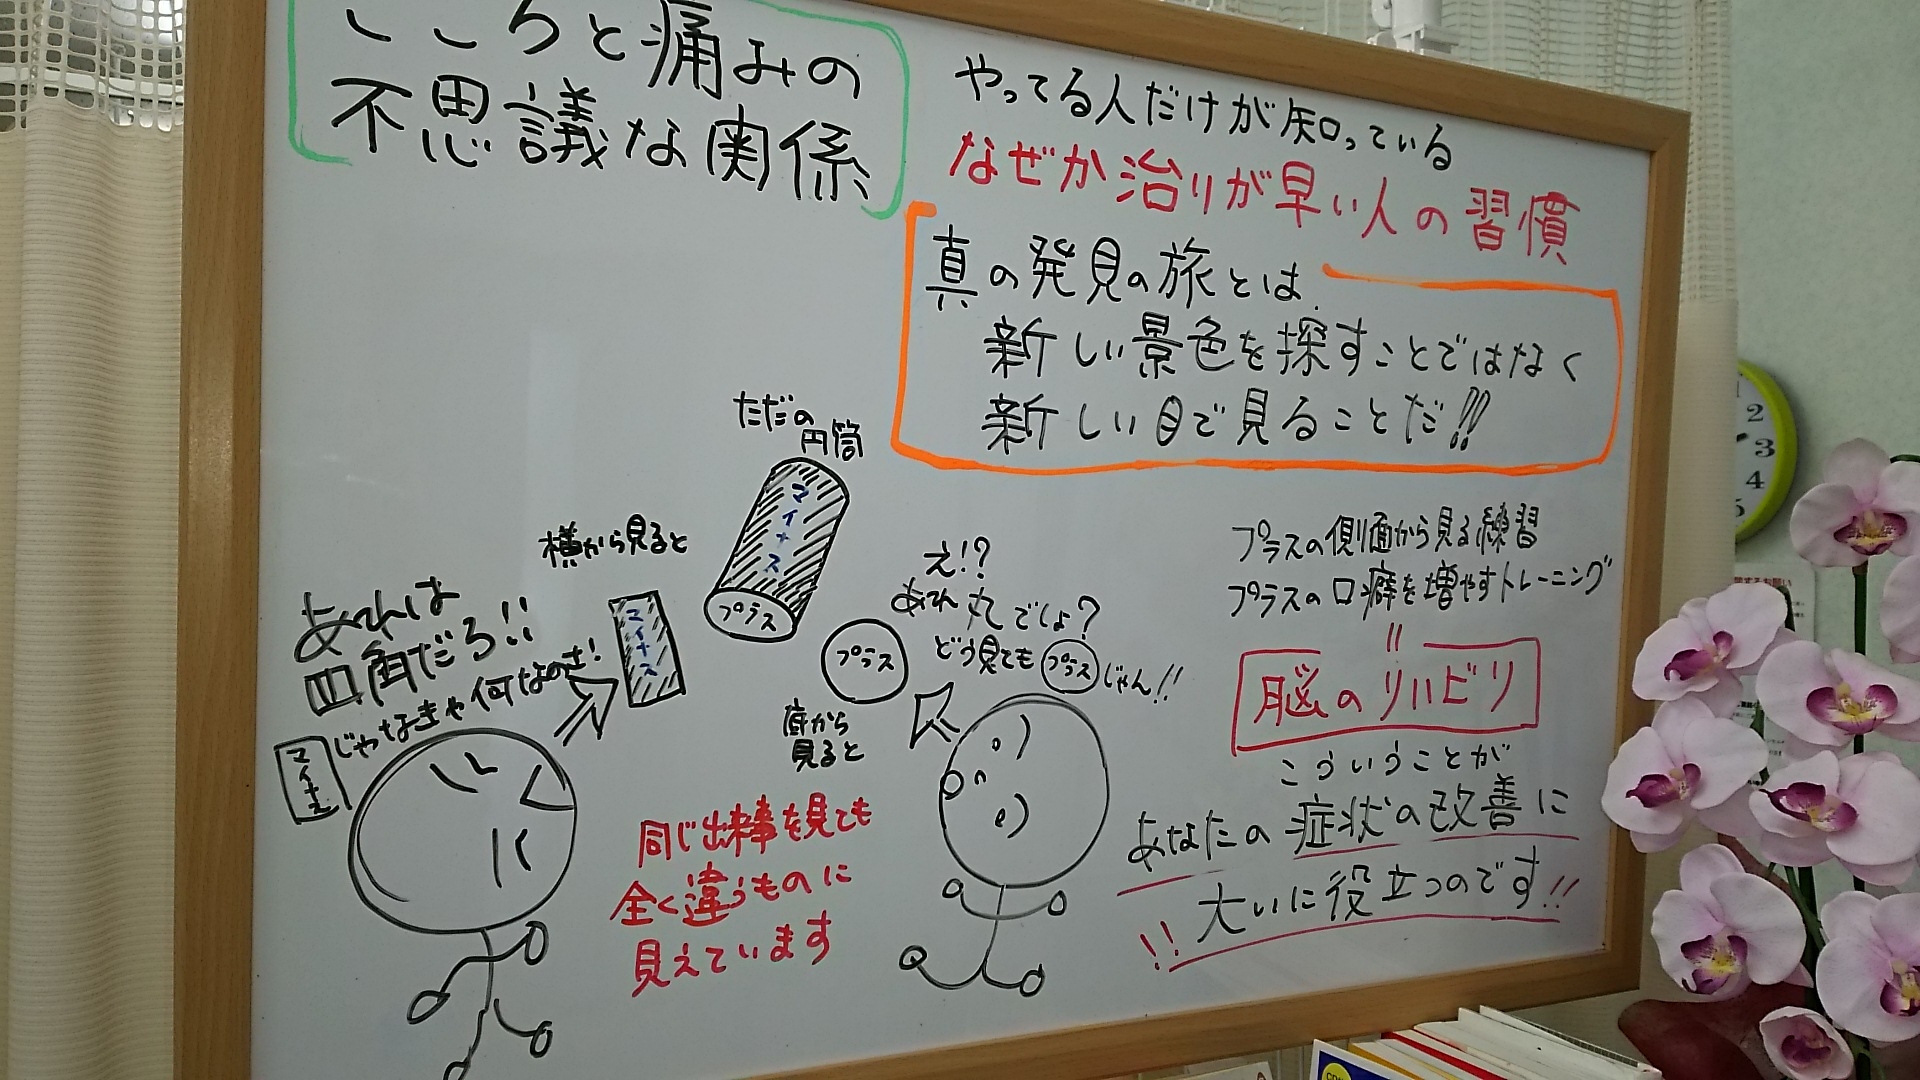 こころと痛みの
不思議な関係
やってる人だけが知っている
なぜか治りが早い人の習慣
真の発見の旅とは
新しい景色を探すことではなく
新しい目で見ることだ!!
ただの
円筒
マイナス
プラス
横から見ると
マイナス
あれは
四角だろ!!
マイナス じゃなきゃ何なのさ!
え!?
あれ丸でしょ?
どう見ても プラス じゃん!!
プラス
底から
見ると
同じ出来事を見ても
全く違うものに
見えています
プラスの側面から見る練習
プラスの口癖を増やすトレーニング
=
脳のリハビリ
こういうことが
あなたの症状の改善に
大いに役立つのです!!
!!
1
2
3
4
5